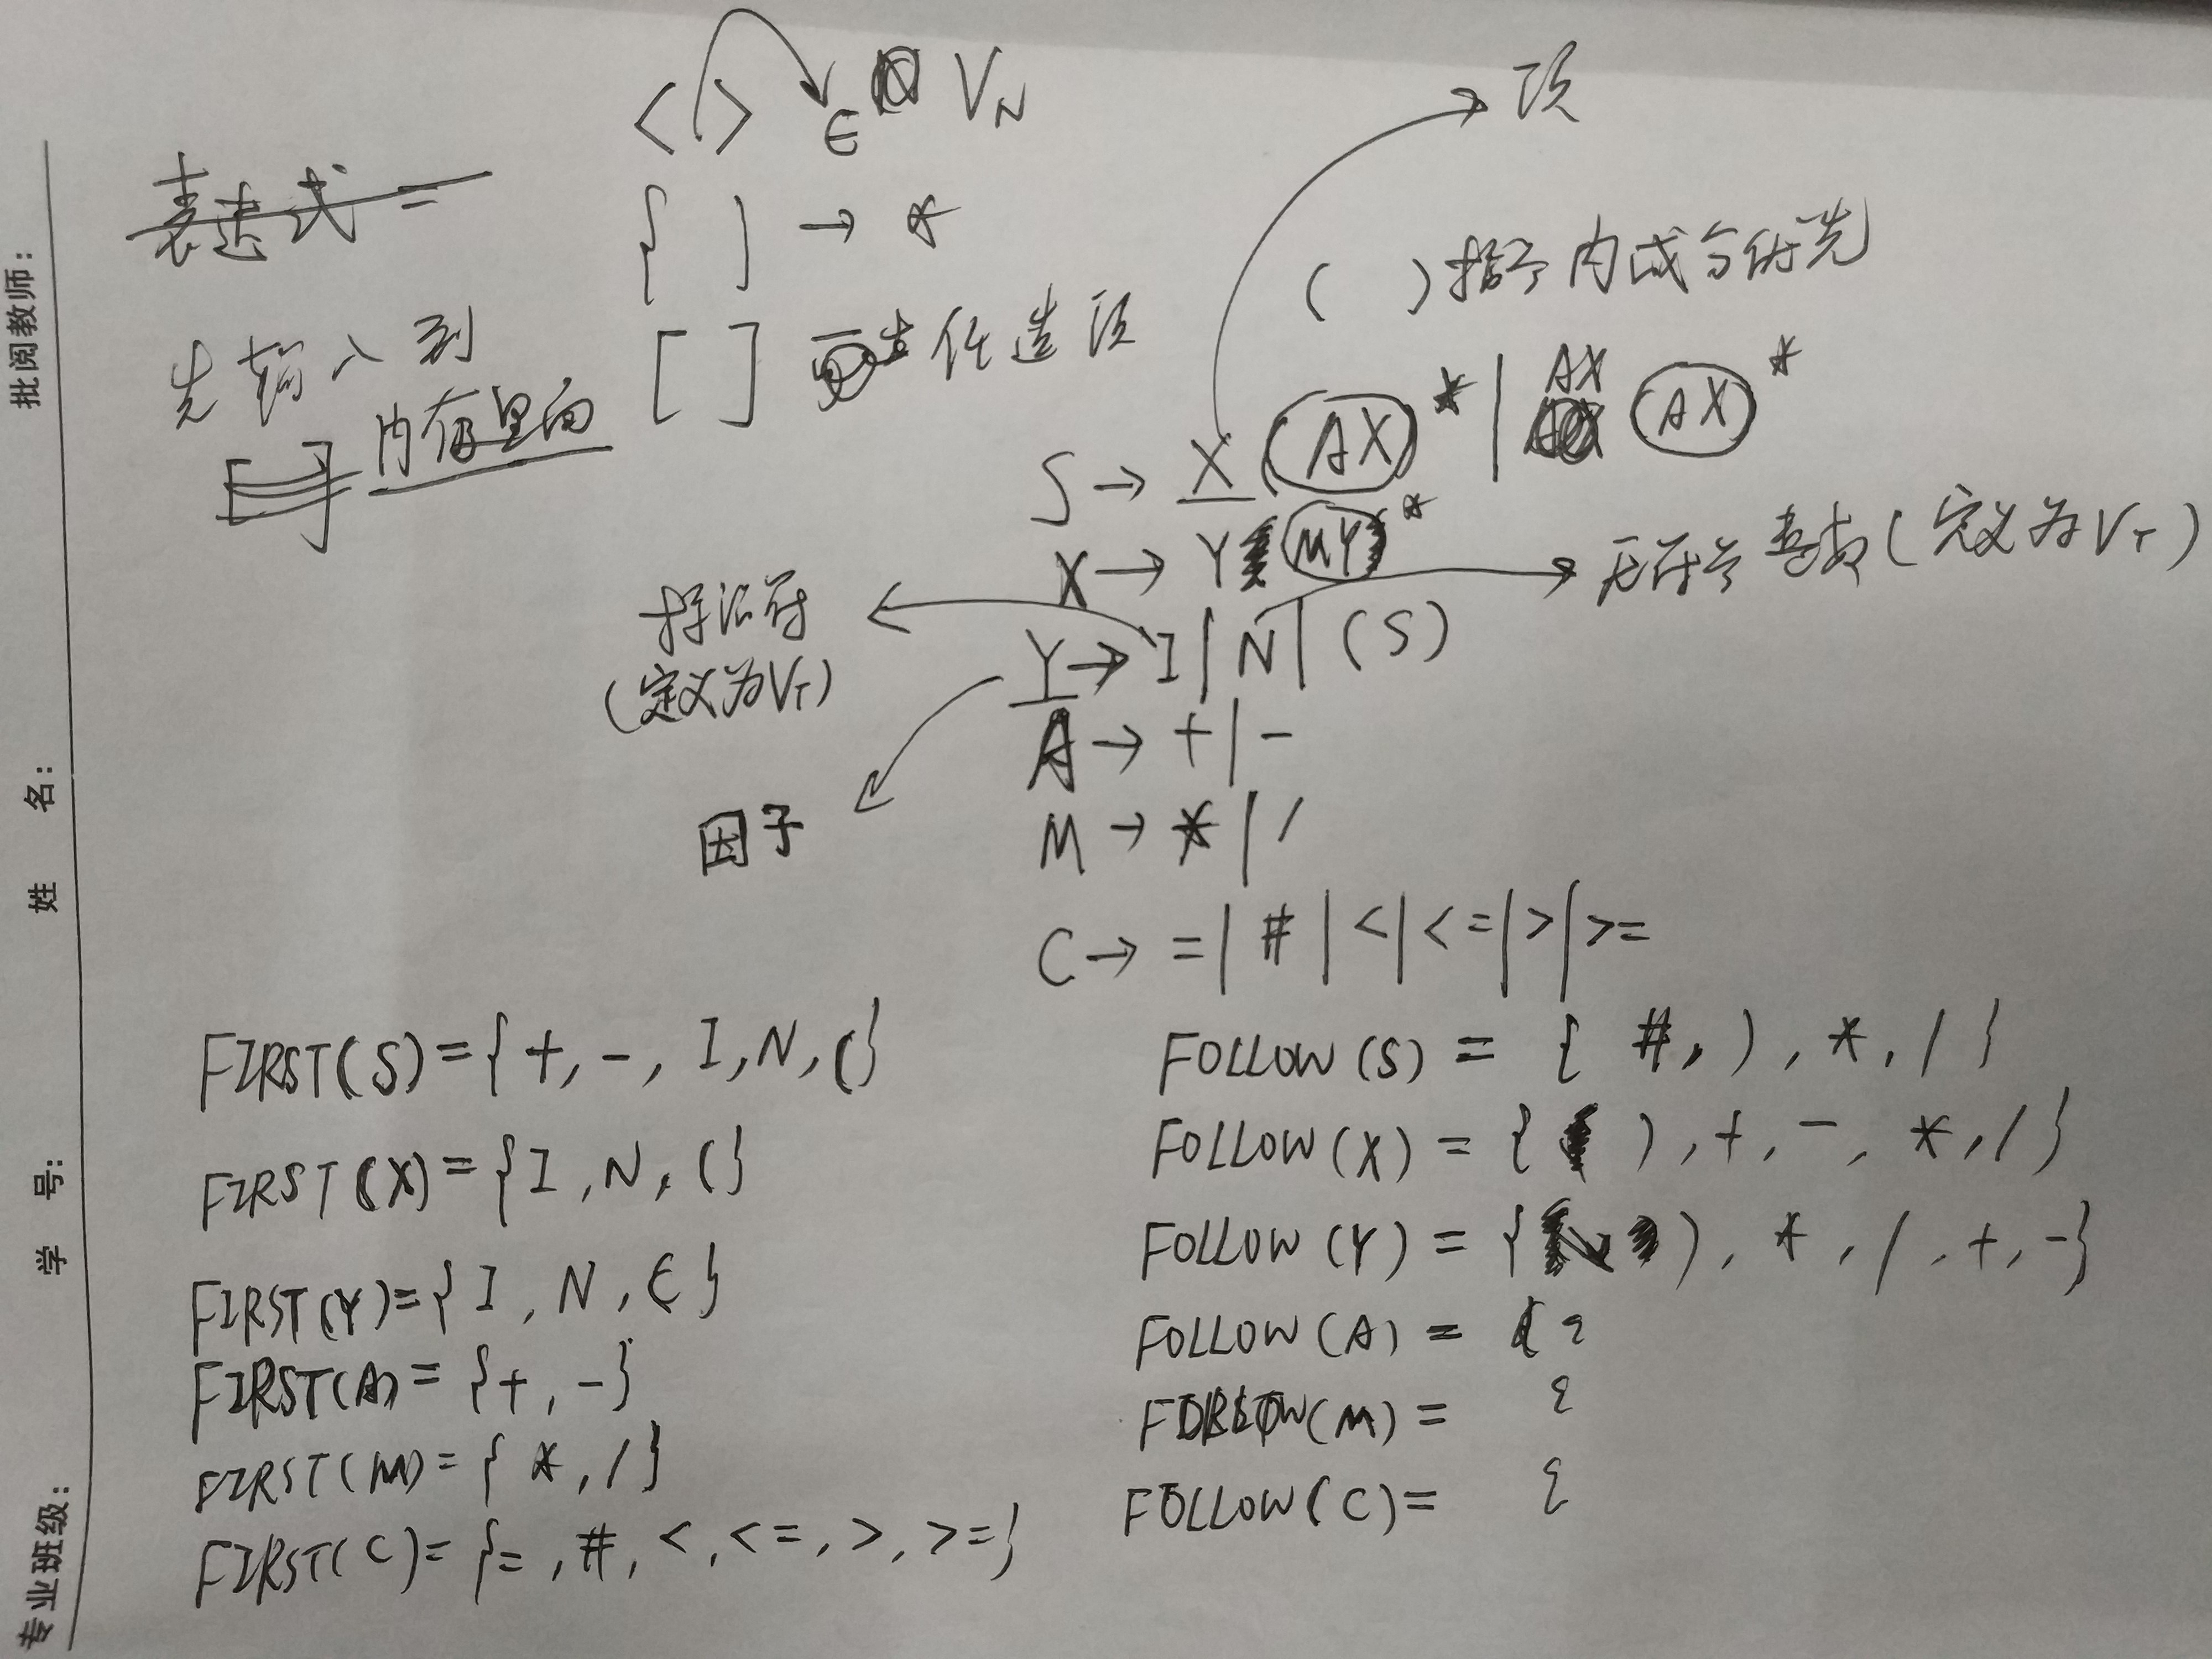 批阅教师：
姓 名：
学 号：
专业班级：
表达式 =
先输入到
内存里面
< > ∈ VN
{ } → *
[ ] 任选项
项
( ) 括号内成分优先
S → X (AX)* | AX (AX)*
X → Y (MY)*
无符号整数 (定义为VT)
标识符
(定义为VT)
Y → I | N | (S)
因子
A → + | -
M → * | /
C → = | # | < | <= | > | >=
FIRST(S) = { +, -, I, N, ( }
FIRST(X) = { I, N, ( }
FIRST(Y) = { I, N, ( }
FIRST(A) = { +, - }
FIRST(M) = { *, / }
FIRST(C) = { =, #, <, <=, >, >= }
FOLLOW(S) = { #, ), *, / }
FOLLOW(X) = { ), +, -, *, / }
FOLLOW(Y) = { ), *, /, +, - }
FOLLOW(A) =
FOLLOW(M) =
FOLLOW(C) =